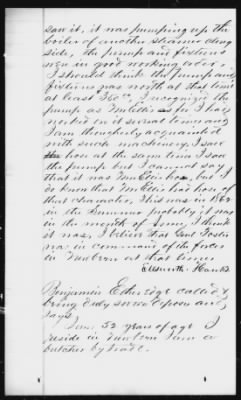 saw it, it was pumping up the
boiler of another steamer along
side, the pump and fixtures
were in good working order.
I should think the pump and
fixtures was worth at that time
at least I recognize the
pump as Mr Ellis as I had
worked on it several times and
I am thoroughly acquainted
with such machinery, I saw
hose at the same time I saw
the pump but I cannot say
that it was Mr Ellis hose, but I
do know that Mr Ellis had hose of
that character, This was in 1862
in the Summer probably it was
in the month of June, I think
it was, I believe that Genl Foster
was in command of the forces
in Newbern at that time
Ellsworth Hawks
Benjamin Etheridge called &
being duly sworn deposes and
says,
I am 52 years of age I
reside in Newbern I am a
butcher by trade.